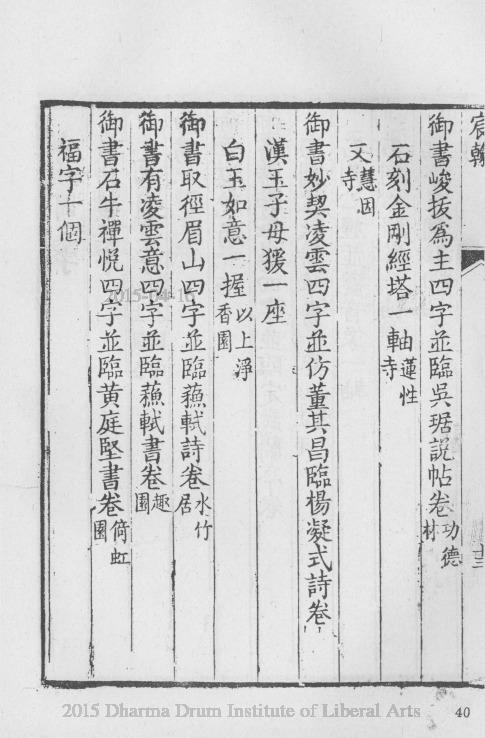 宸翰
十三
御書峻拔為主四字並臨吳琚說帖卷功德林
石刻金剛經塔一軸蓮性寺
又慧因寺
御書妙契凌雲四字並仿董其昌臨楊凝式詩卷
漢玉子母猨一座
白玉如意一握以上淨香園
御書取徑眉山四字並臨蘓軾詩卷水竹居
御書有凌雲意四字並臨蘓軾書卷趣園
御書石牛禪悅四字並臨黃庭堅書卷倚虹園
福字十個
2015-04-16
2015 Dharma Drum Institute of Liberal Arts
40